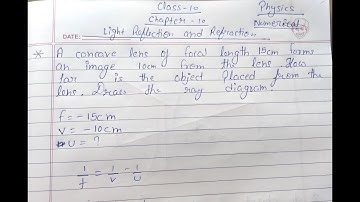 Class-10 Physics
Chapter-10 Numerical
DATE: Light Reflection and Refraction
* A concave lens of focal length 15cm forms
an image 10cm from the lens. How
far is the object placed from the
lens. Draw the ray diagram.
f = -15cm
v = -10cm
u = ?
1/f = 1/v - 1/u